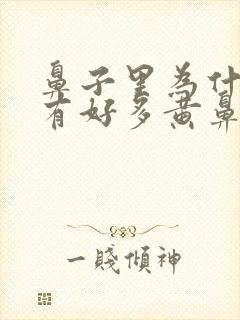 鼻子里为什
有好多黄鼻
一賤傾神